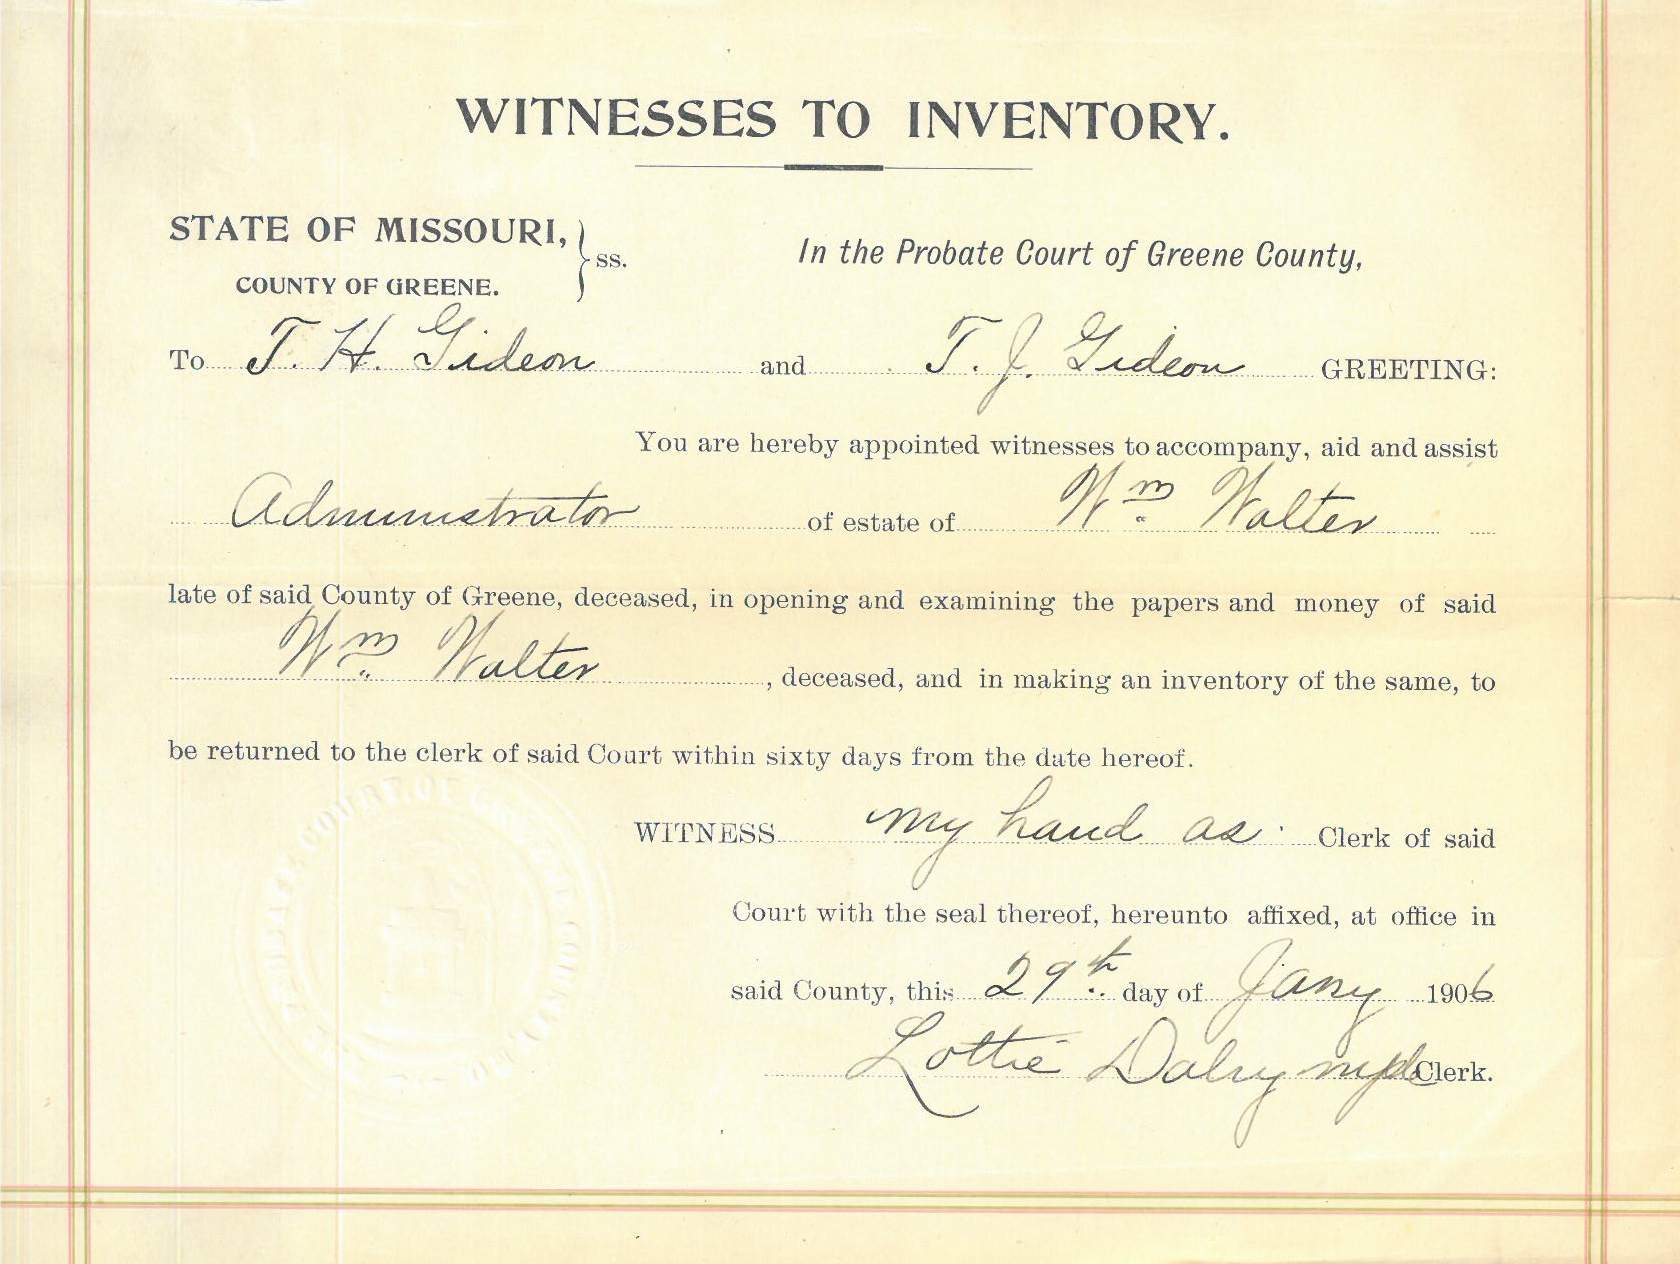 WITNESSES TO INVENTORY.
STATE OF MISSOURI,
COUNTY OF GREENE.
} ss.
In the Probate Court of Greene County,
To T. H. Gideon and T. J. Gideon GREETING:
You are hereby appointed witnesses to accompany, aid and assist
Administrator of estate of Wm Walter
late of said County of Greene, deceased, in opening and examining the papers and money of said
Wm Walter, deceased, and in making an inventory of the same, to
be returned to the clerk of said Court within sixty days from the date hereof.
WITNESS my hand as Clerk of said
Court with the seal thereof, hereunto affixed, at office in
said County, this 29th day of Jany 1906
Lottie Dalrymple Clerk.
PROBATE COURT OF GREENE COUNTY, MO